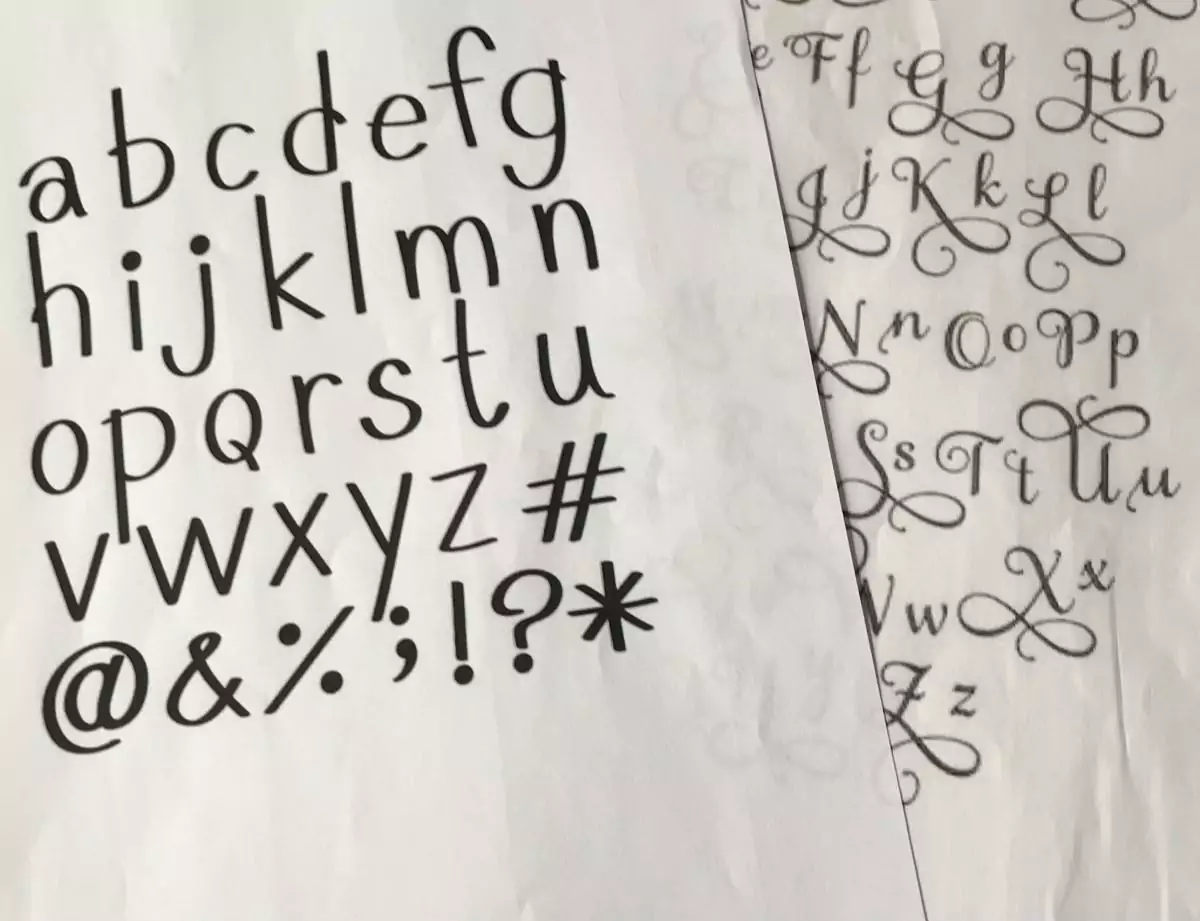 a b c d e f g
h i j k l m n
o p q r s t u
v w x y z #
@ & % ; ! ? *
e F f G g H h
J j K k L l
N n O o P p
S s T t U u
w X x
Z z